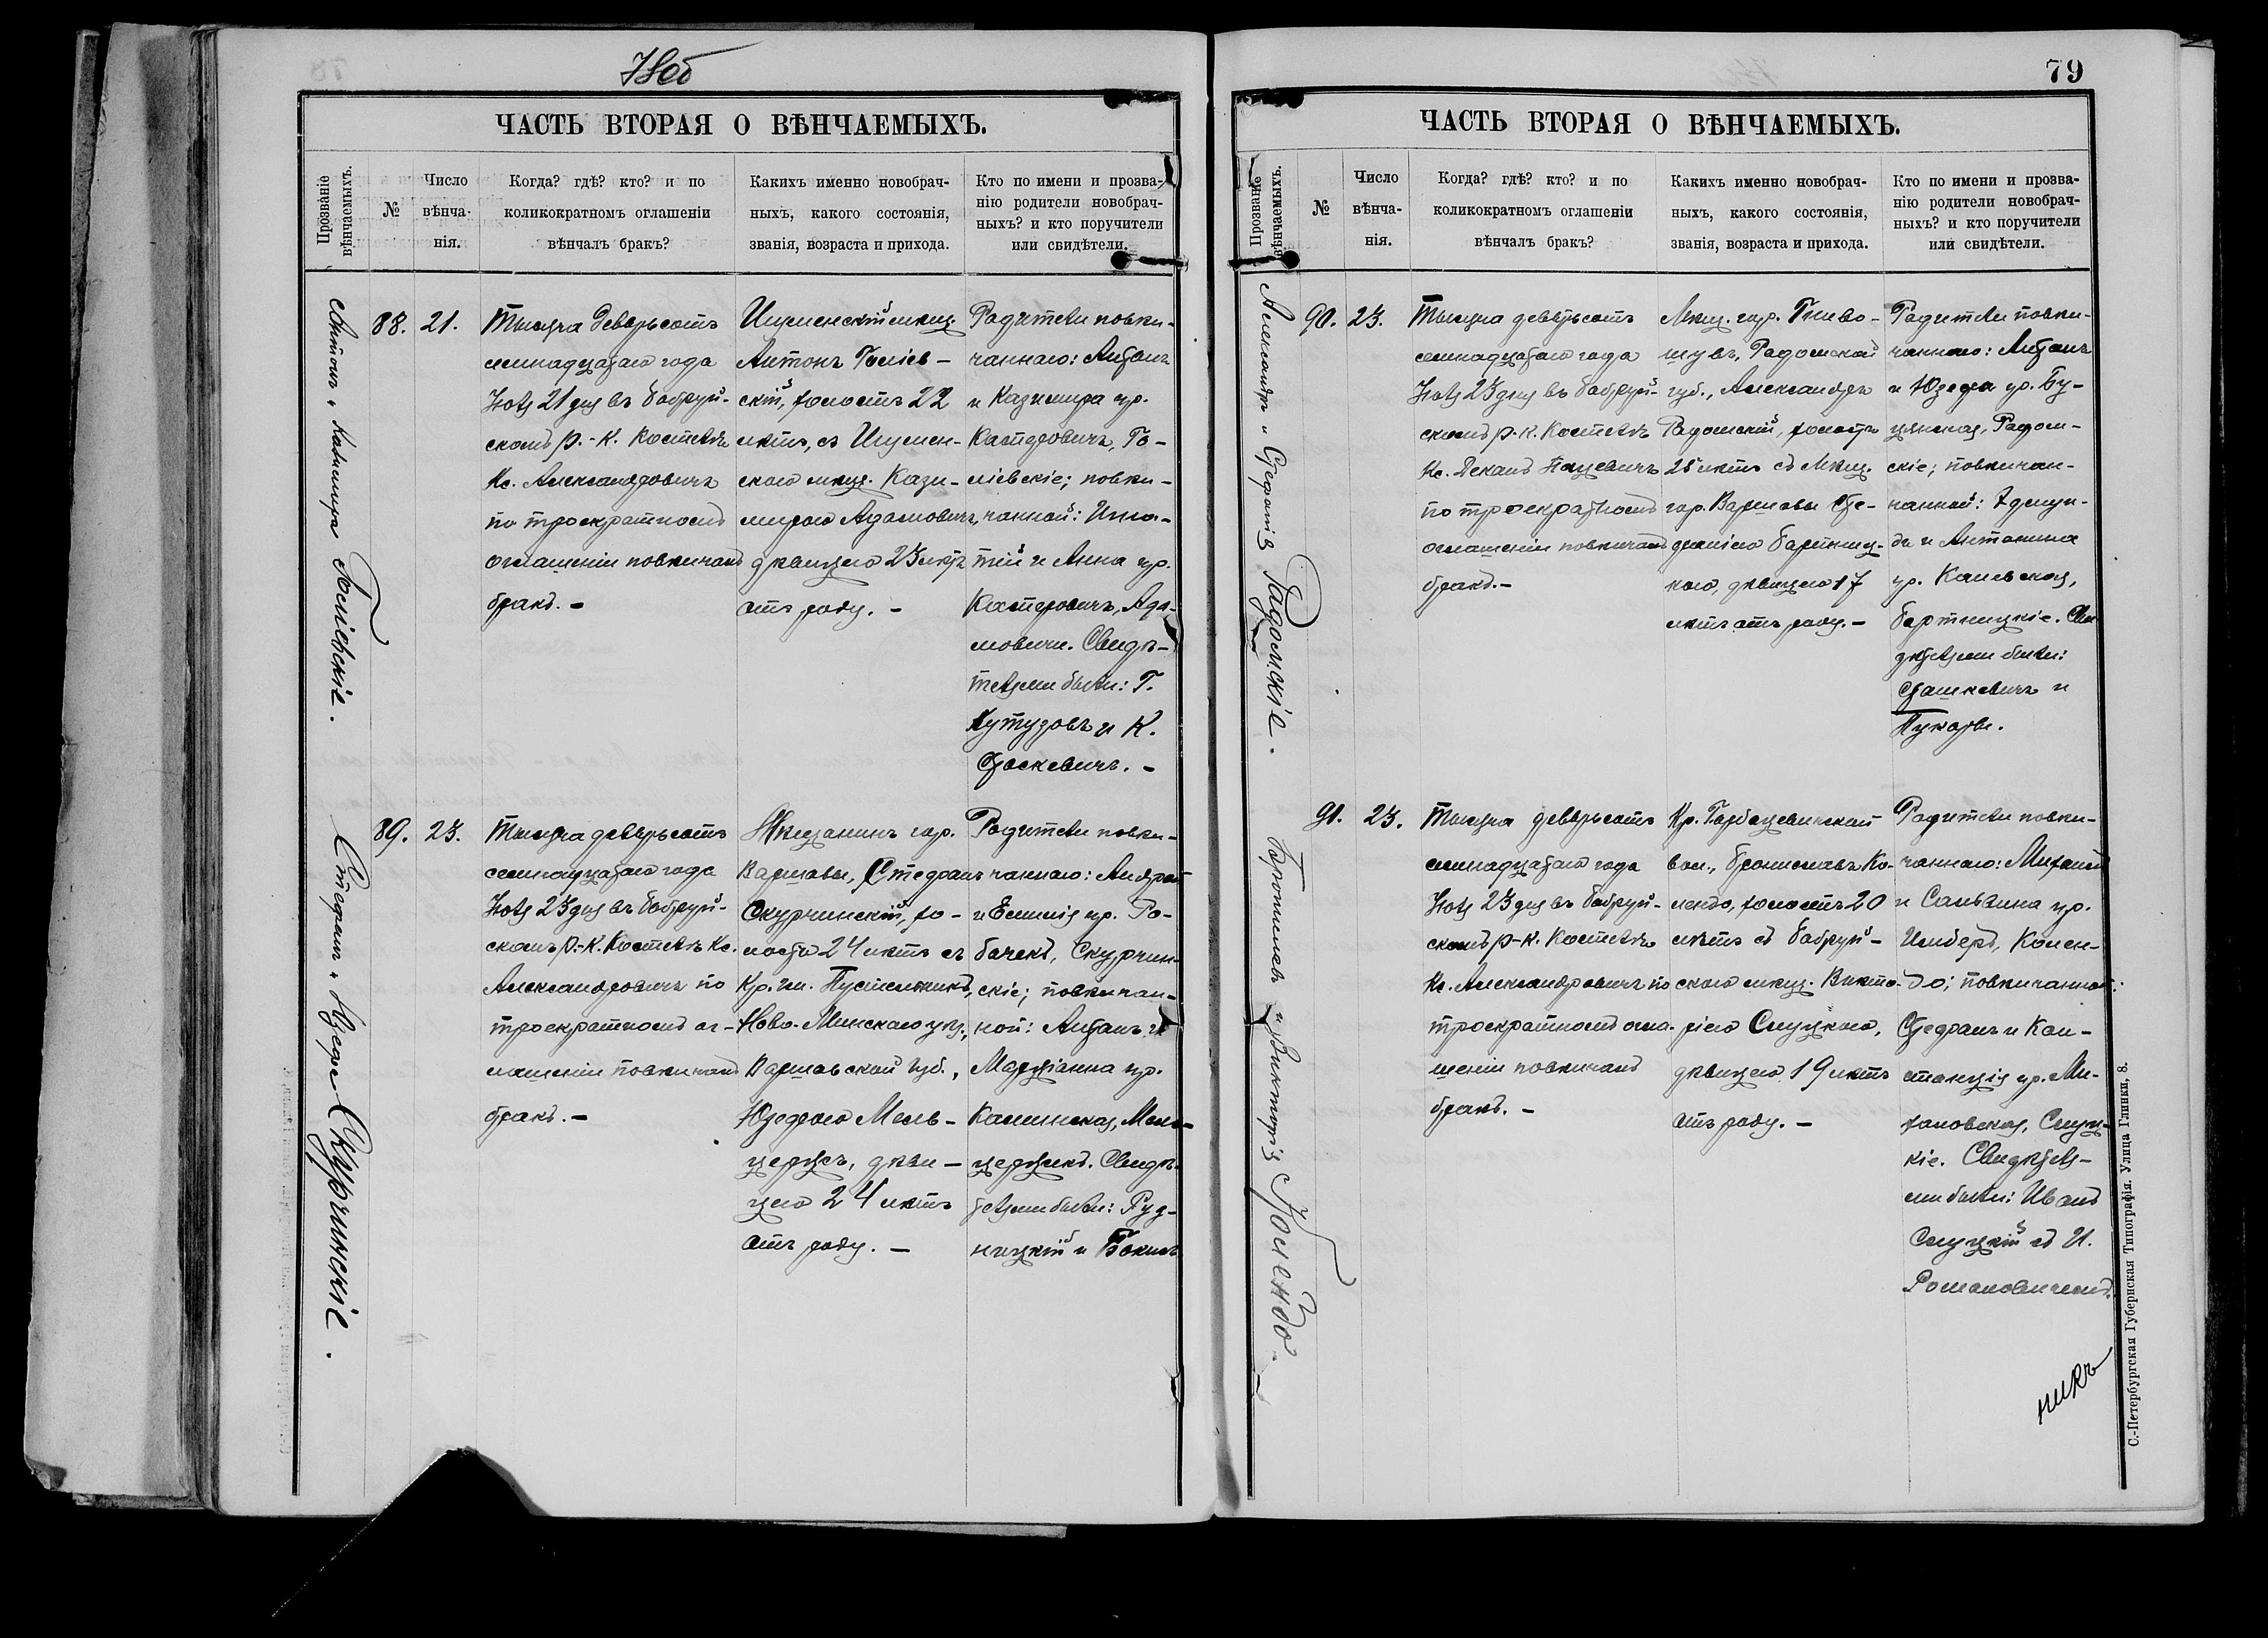 78об
ЧАСТЬ ВТОРАЯ О ВѢНЧАЕМЫХЪ.
Прозваніе
вѣнчаемыхъ.
№
Число
вѣнча-
нія.
Когда? гдѣ? кто? и по
коликократномъ оглашеніи
вѣнчалъ бракъ?
Какихъ именно новобрач-
ныхъ, какого состоянія,
званія, возраста и прихода.
Кто по имени и прозва-
нію родители новобрач-
ныхъ? и кто поручители
или свидѣтели.
Антонъ и Казимира Голіевскіе.
88.
21.
Тысяча девятьсотъ
семнадцатаго года
Ноя 21 дня въ Бобруй-
скомъ р.-к. Костелѣ
Кс. Александровичъ
по троекратномъ
оглашеніи повѣнчалъ
бракъ. –
Игуменскій мѣщ.
Антонъ Голіев-
скій, холостъ 22
лѣтъ, съ Игумен-
скою мѣщ. Кази-
мирою Адамовичъ,
дѣвицею 23 лѣтъ
отъ роду. –
Родители повѣн-
чаннаго: Антонъ
и Казимира ур.
Касперовичъ, Го-
ліевскіе; повѣн-
чанной: Игна-
тій и Анна ур.
Касперовичъ, Ада-
мовичи. Свидѣ-
телями были: Г.
Кутузовъ и К.
Стаскевичъ. –
Стефанъ и Юзефа Скурчинскіе.
89.
23.
Тысяча девятьсотъ
семнадцатаго года
Ноя 23 дня въ Бобруй-
скомъ р.-к. Костелѣ Кс.
Александровичъ по
троекратномъ ог-
лашеніи повѣнчалъ
бракъ. –
Мѣщанинъ гор.
Варшавы, Стефанъ
Скурчинскій, хо-
лостъ 24 лѣтъ съ
Кр. гм.
Ново-Минскаго уѣз.,
Варшавской губ.,
Юзефою Мель-
церже, дѣви-
цею 24 лѣтъ
отъ роду. –
Родители повѣн-
чаннаго: Андрей
и Емилія ур. Ро-
бачекъ, Скурчин-
скіе; повѣнчан-
ной: Антонъ и
Марціанна ур.
Каминская, Мель-
Свидѣ-
телями были: Руд-
ницкій и
79
ЧАСТЬ ВТОРАЯ О ВѢНЧАЕМЫХЪ.
Прозваніе
вѣнчаемыхъ.
№
Число
вѣнча-
нія.
Когда? гдѣ? кто? и по
коликократномъ оглашеніи
вѣнчалъ бракъ?
Какихъ именно новобрач-
ныхъ, какого состоянія,
званія, возраста и прихода.
Кто по имени и прозва-
нію родители новобрач-
ныхъ? и кто поручители
или свидѣтели.
Александръ и Стефанія Радомскіе.
90.
23.
Тысяча девятьсотъ
семнадцатаго года
Ноя 23 дня въ Бобруй-
скомъ р.-к. Костелѣ
Кс. Деканъ Пацевичъ
по троекратномъ
оглашеніи повѣнчалъ
бракъ. –
Мѣщ. гор. Гнево-
шувъ, Радомской
губ., Александръ
Радомскій, холостъ
25 лѣтъ съ Мѣщ.
гор. Варшавы Сте-
фаніею Бартниц-
кою, дѣвицею 17
лѣтъ отъ роду. –
Родители повѣн-
чаннаго: Антонъ
и Юзефа ур. Бу-
Радом-
скіе; повѣнчан-
чанной: Эдмун-
дъ и Антонина
ур. Каневская,
Бартницкіе. Сви
дѣтелями были:
Сташкевичъ и
Брониславъ и Викторія Колендо.
91.
23.
Тысяча девятьсотъ
семнадцатаго года
Ноя 23 дня въ Бобруй-
скомъ р-к. Костелѣ
Кс. Александровичъ по
троекратномъ огла-
шеніи повѣнчалъ
бракъ. –
Кр. Горбацевичской
вол., Брониславъ Ко-
лендо, холостъ 20
лѣтъ съ Бобруй-
скою мѣщ. Викто-
ріею Слуцкою,
дѣвицею 19 лѣтъ
отъ роду. –
Родители повѣн-
чаннаго: Михаилъ
и Сальвина ур.
Имберъ, Колен-
до; повѣнчанной:
Стефанъ и Кон-
станція ур. Ми-
хановская, Слуц-
кіе. Свидѣтеля-
ми были: Иванъ
Слуцкій съ И.
Романовичемъ.
никъ
С.-Петербургская Губернская Типографія. Улица Глинки, 8.